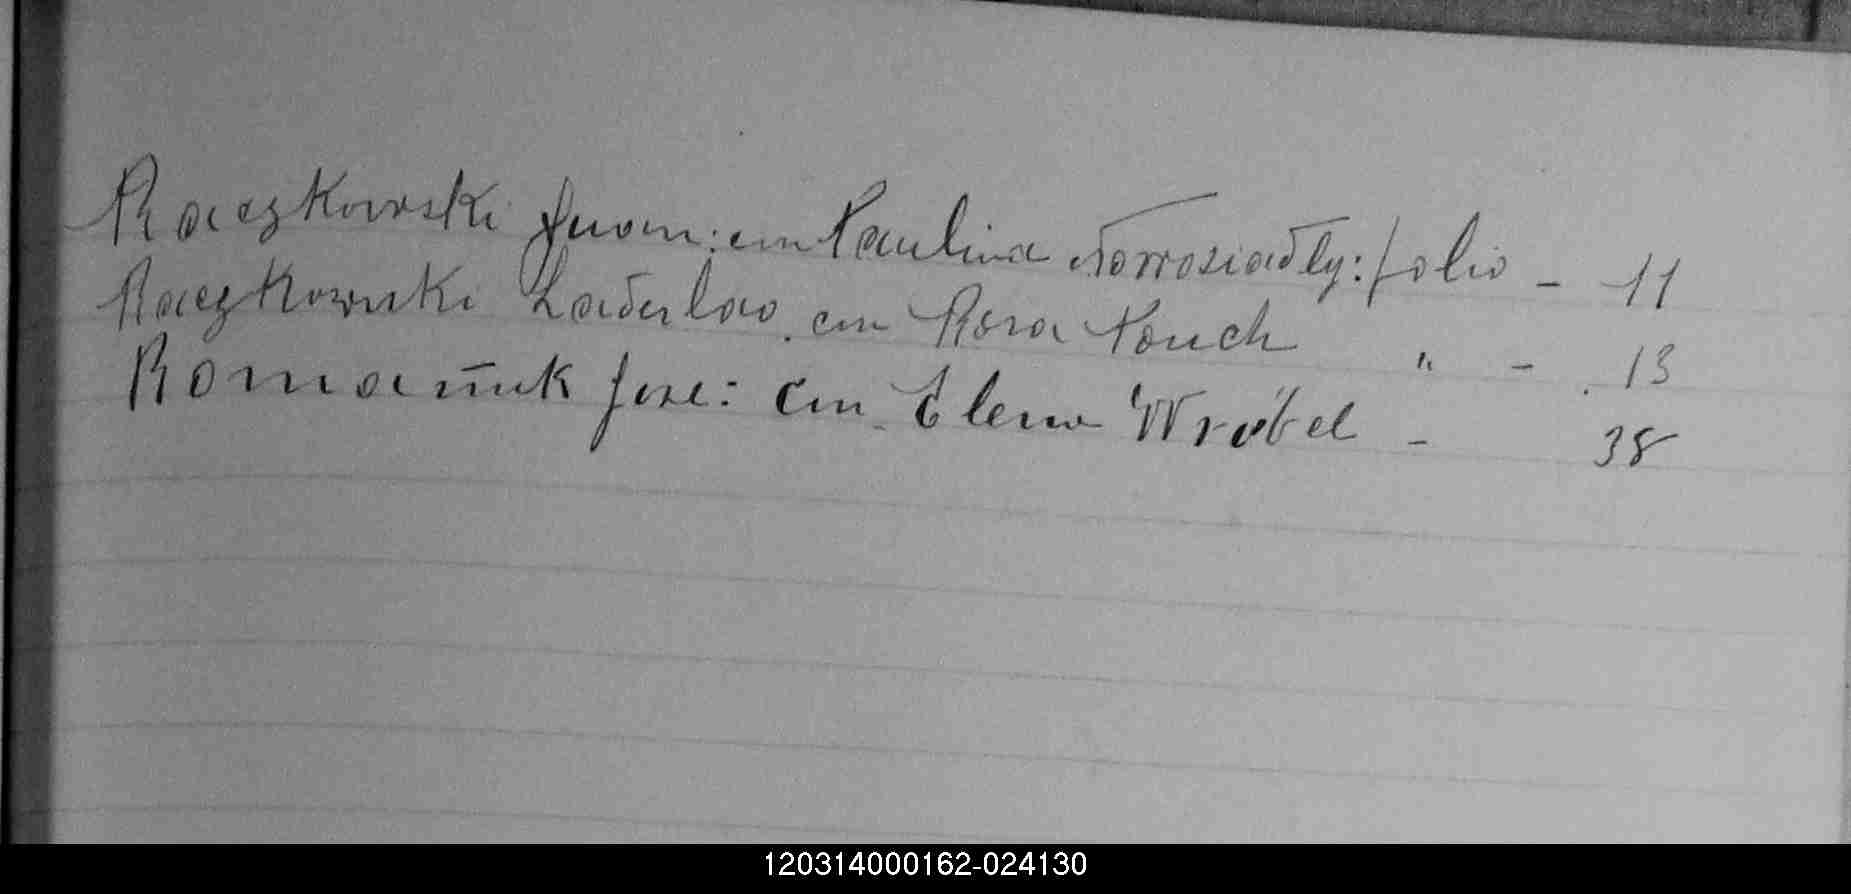 Raczkowski Juan: con Paulina folio - 11
Raczkowski Ladislao con Rosa " - 13
Romaniuk Jose: con Elena Wróbel - 38
120314000162-024130